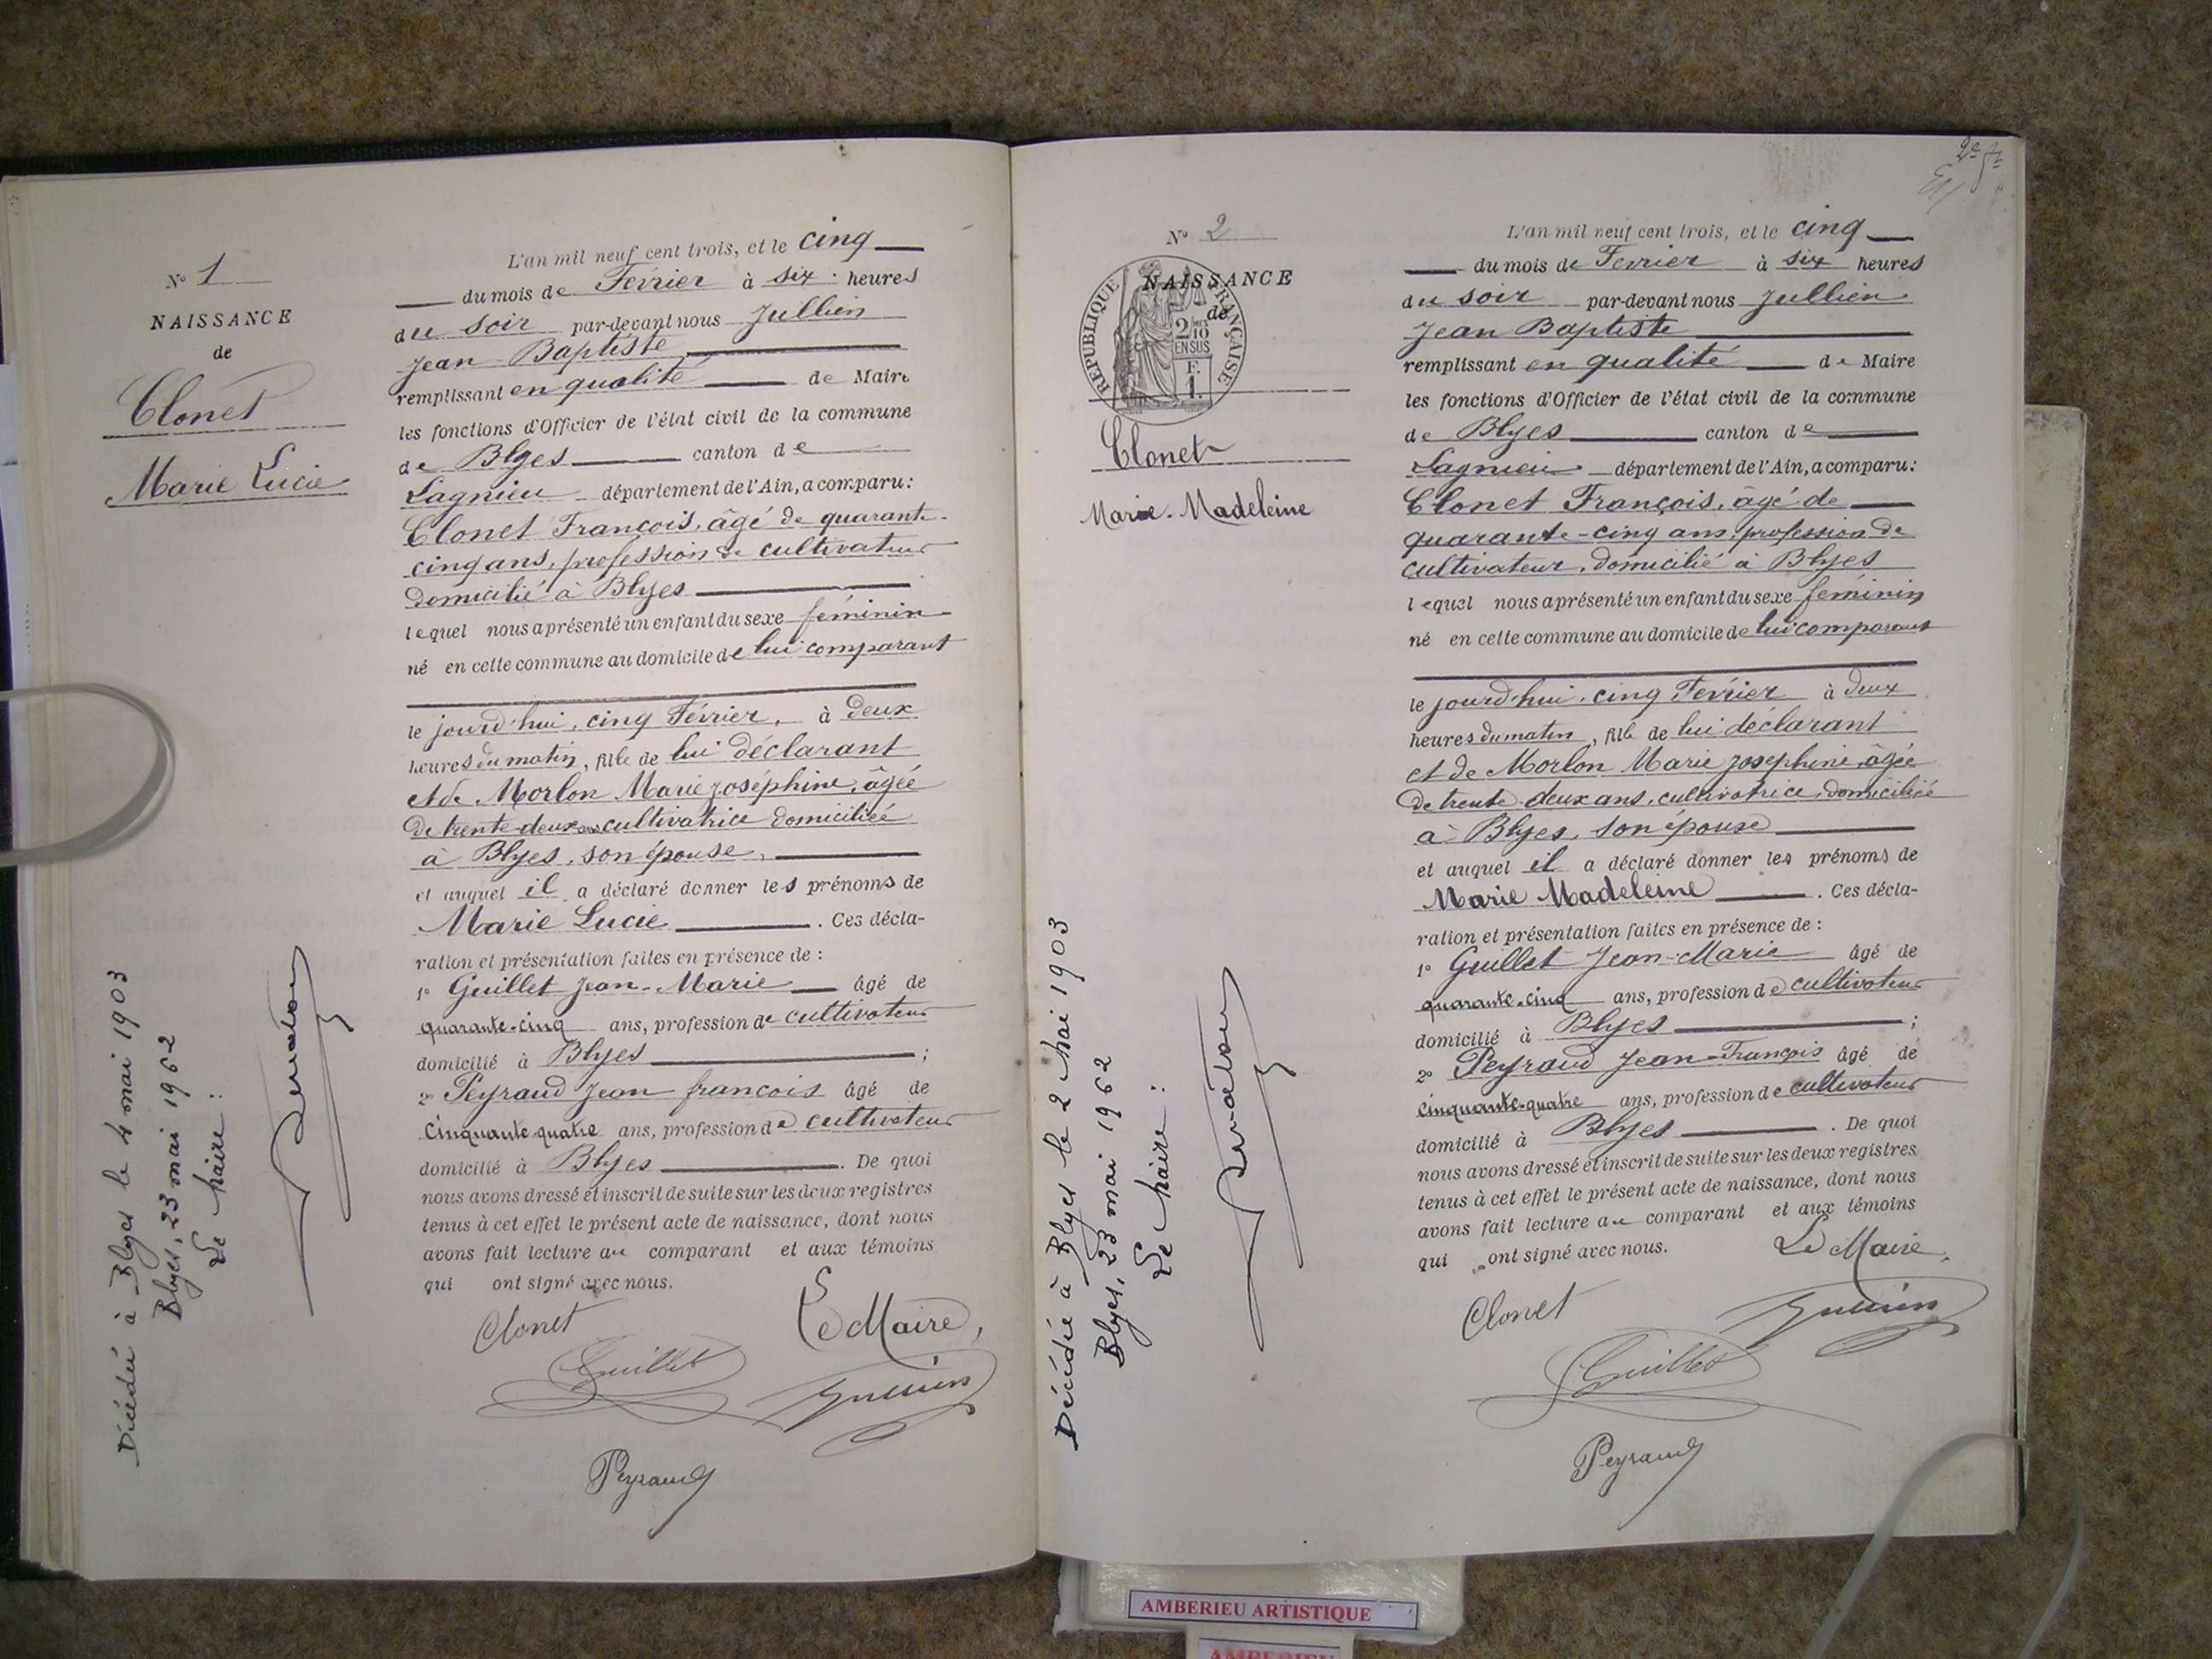 N° 1
NAISSANCE
de
Clonet
Marie Lucie
L'an mil neuf cent trois, et le cinq
du mois de Fevrier à six heures
du soir par-devant nous Jullien
Jean Baptiste
remplissant en qualité de Maire
les fonctions d'Officier de l'état civil de la commune
de Blyes canton de
Lagnieu département de l'Ain, a comparu:
Clonet François, âgé de quarante-
cinq ans, profession de cultivateur
domicilié à Blyes
lequel nous a présenté un enfant du sexe féminin
né en cette commune au domicile de lui comparant
le jourd'hui, cinq Février, à deux
heures du matin, fille de lui déclarant
et de Morlon Marie Joséphine, âgée
de trente-deux ans cultivatrice domiciliée
à Blyes, son épouse,
et auquel il a déclaré donner les prénoms de
Marie Lucie. Ces décla-
ration et présentation faites en présence de :
1° Guillet Jean-Marie âgé de
quarante-cinq ans, profession de cultivateur
domicilié à Blyes ;
2° Peyraud Jean francois âgé de
cinquante quatre ans, profession de cultivateur
domicilié à Blyes. De quoi
nous avons dressé et inscrit de suite sur les deux registres
tenus à cet effet le présent acte de naissance, dont nous
avons fait lecture au comparant et aux témoins
qui ont signé avec nous.
Clonet Le Maire,
Guillet Jullien
Peyraud
Décédée à Blyes le 4 mai 1903
Blyes, 23 mai 1962
Le Maire :
N° 2
NAISSANCE
de
REPUBLIQUE FRANÇAISE
2/10
EN SUS
F.
1.
Clonet
Marie-Madeleine
L'an mil neuf cent trois, et le cinq
du mois de Fevrier à six heures
du soir par-devant nous Jullien
Jean Baptiste
remplissant en qualité de Maire
les fonctions d'Officier de l'état civil de la commune
de Blyes canton de
Lagnieu département de l'Ain, a comparu:
Clonet François, âgé de
quarante-cinq ans, profession de
cultivateur, domicilié à Blyes
lequel nous a présenté un enfant du sexe féminin
né en cette commune au domicile de lui comparant
le jourd'hui, cinq Fevrier à deux
heures du matin, fille de lui déclarant
et de Morlon Marie Josephine, âgée
de trente-deux ans, cultivatrice, domiciliée
à Blyes, son épouse
et auquel il a déclaré donner les prénoms de
Marie Madeleine. Ces décla-
ration et présentation faites en présence de :
1° Guillet Jean-Marie âgé de
quarante-cinq ans, profession de cultivateur
domicilié à Blyes ;
2° Peyraud Jean-François âgé de
cinquante-quatre ans, profession de cultivateur
domicilié à Blyes. De quoi
nous avons dressé et inscrit de suite sur les deux registres
tenus à cet effet le présent acte de naissance, dont nous
avons fait lecture au comparant et aux témoins
qui ont signé avec nous. Le Maire,
Clonet Jullien
Guillet
Peyraud
Décédée à Blyes le 2 Mai 1903
Blyes, 23 mai 1962
Le Maire :
AMBERIEU ARTISTIQUE
AMBERIEU